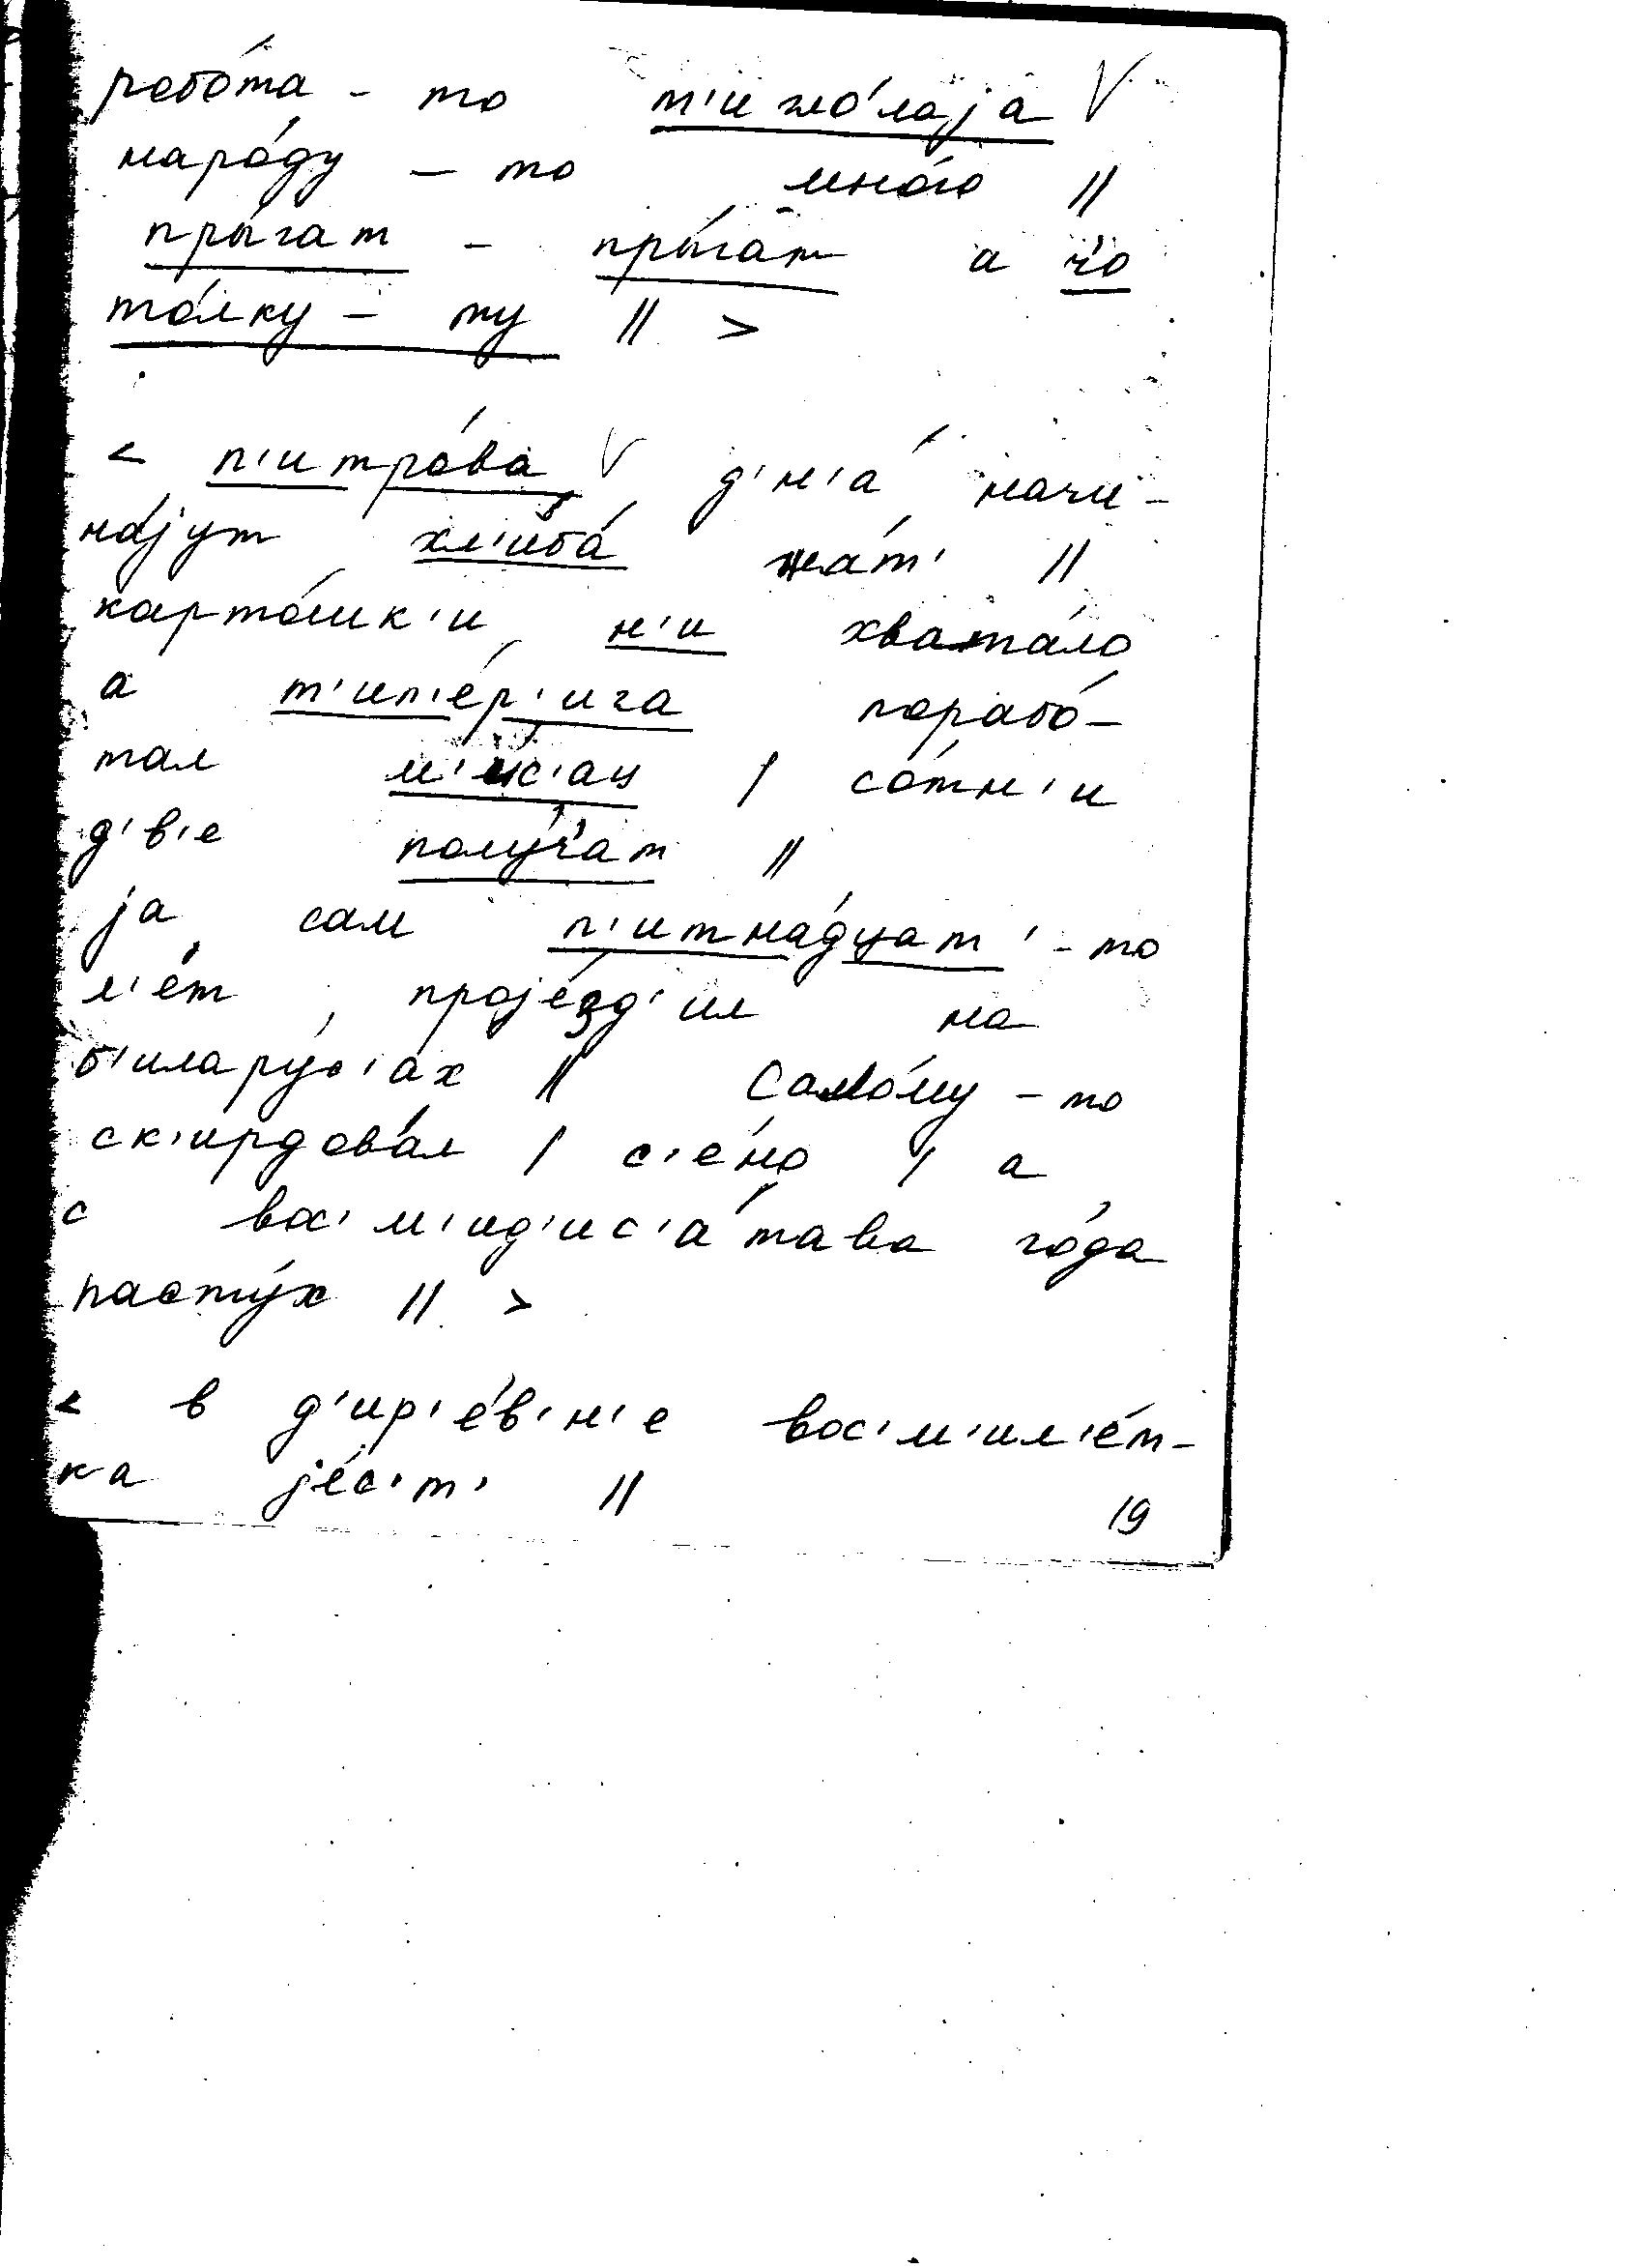 робо́та - то т'ижо́лаjа V
наро́ду - то мно́го //
пры́гат - пры́гат а ч'о
то́лку - ту // >
< п'итро́ва V д'н'а́ начи-
на́jут хл'иба́ жат' //
карто́шк'и н'и хвата́ло
а т'ип'е́р'ига порабо́-
тал м'и́с'ац / со́тн'и
д'в'е полу́ч'ат //
jа сам п'итна́дцат' - то
л'ет проjе́зд'ил на
б'илару́с'ах // Самому - то
ск'ирдова́л / с'е́но / а
с вос'м'ид'ис'а́тава го́да
пасту́х // >
< в д'ир'е́в'н'е вос'м'ил'е́т-
ка jе́с'т' //
19